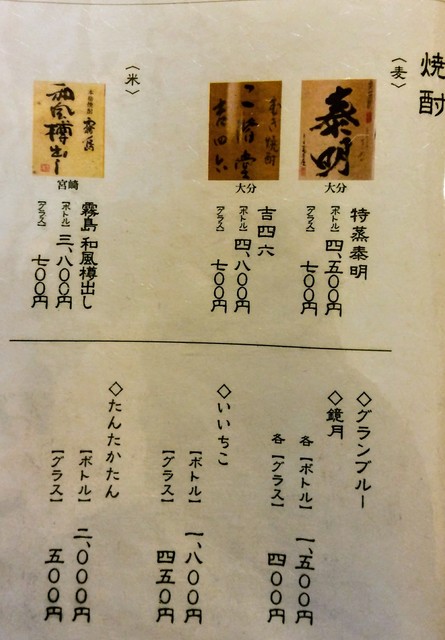 焼酎
〈麦〉
泰明
大分
特蒸泰明
【ボトル】四、五〇〇円
【グラス】七〇〇円
むぎ焼酎
二階堂
吉四六
大分
吉四六
【ボトル】四、八〇〇円
【グラス】七〇〇円
〈米〉
本格焼酎 霧島
和風樽出し
宮崎
霧島 和風樽出し
【ボトル】三、八〇〇円
【グラス】七〇〇円
◇グランブルー
◇鏡月
各【ボトル】一、五〇〇円
各【グラス】四〇〇円
◇いいちこ
【ボトル】一、八〇〇円
【グラス】四五〇円
◇たんたかたん
【ボトル】二、〇〇〇円
【グラス】五〇〇円